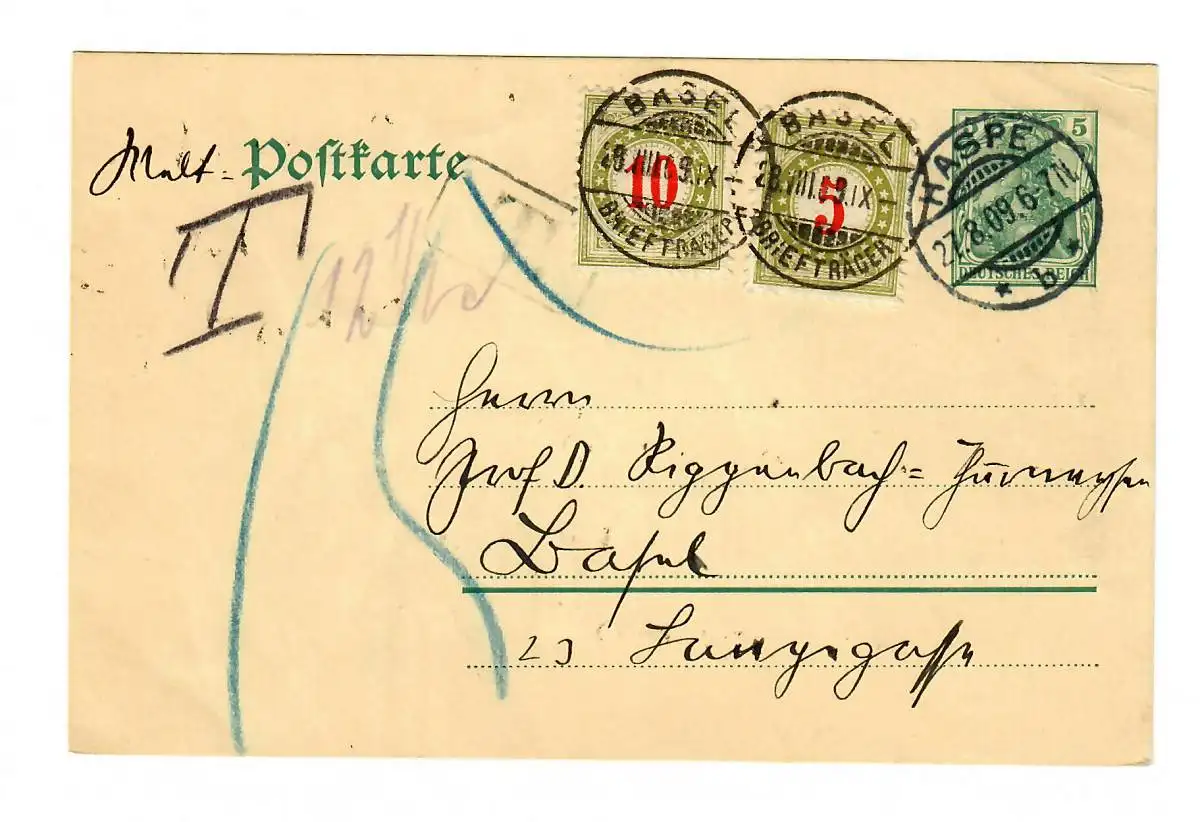 Welt- Postkarte
T
12 1/2
15
BASEL
10
28.VIII.09.IX
BRIEFTRÄGER
BASEL
5
28.VIII.09.IX
BRIEFTRÄGER
5
HASPE
27.8.09.6-7N
* b *
DEUTSCHES REICH
Herrn
Prof D. Riggenbach-Thurneysen
Basel
23 Langegasse